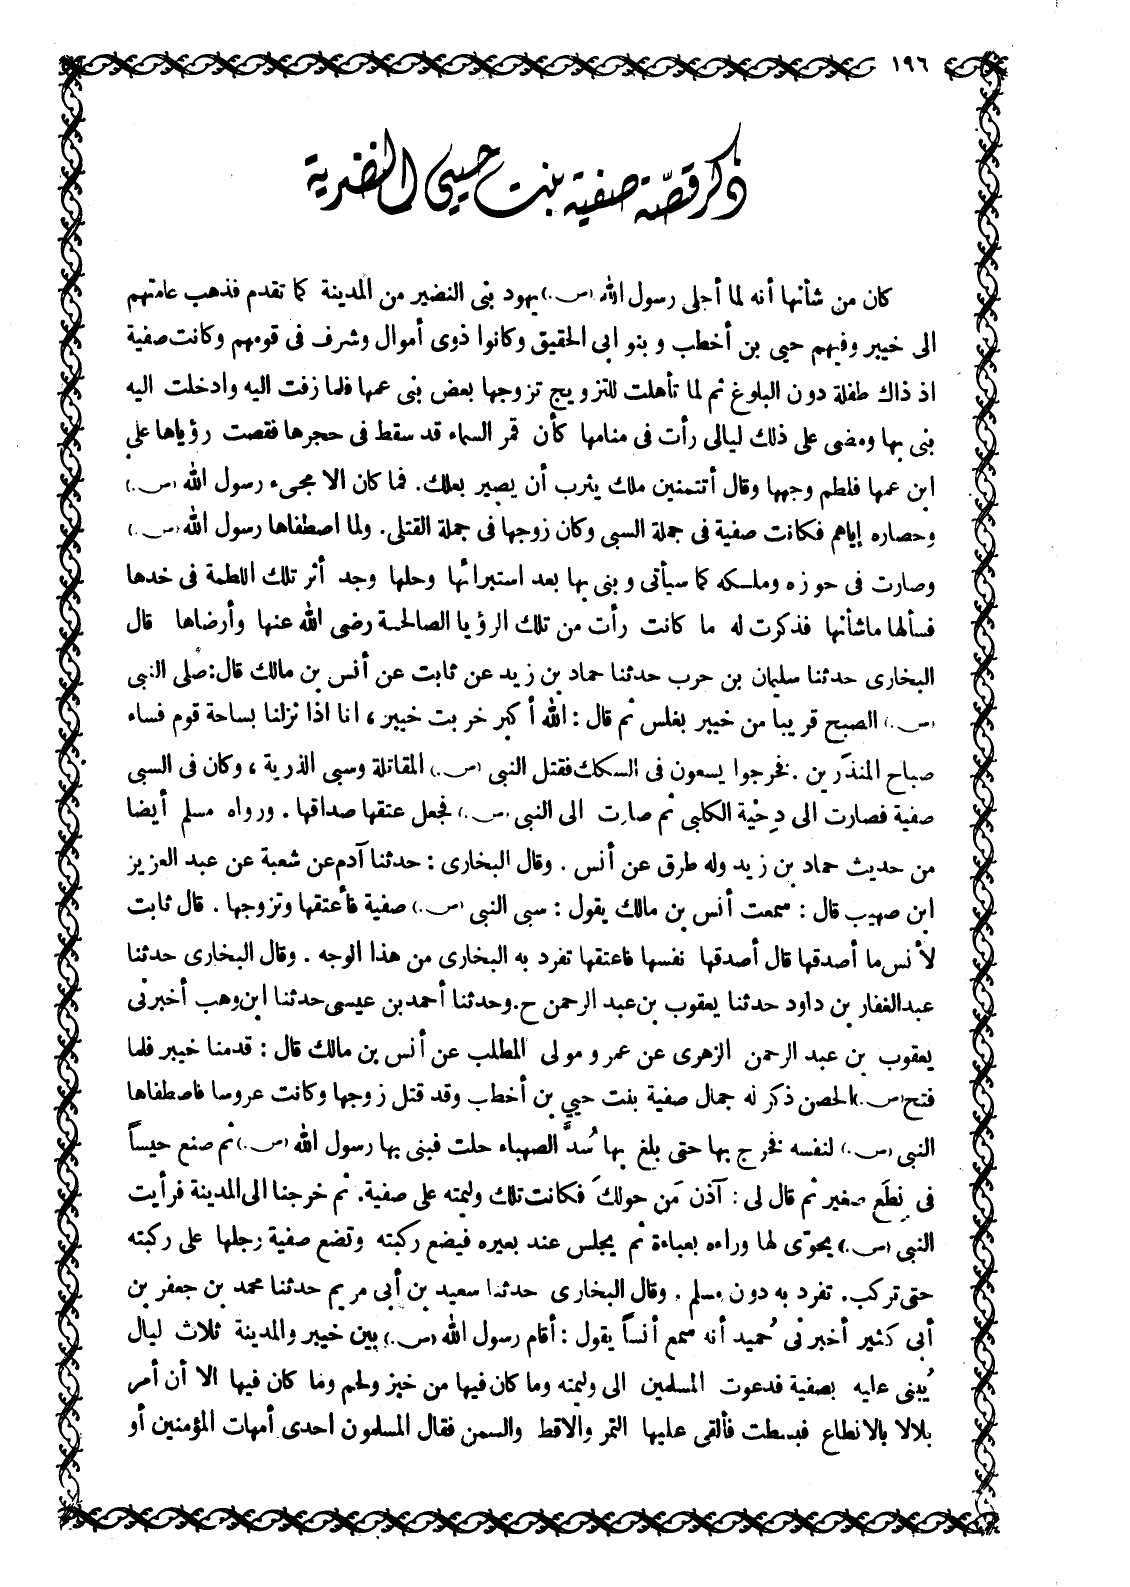 ١٩٦
ذكر قصّة صفية بنت حيي النضرية
كان من شأنها أنه لما أجلى رسول الله (ص.) يهود بنى النضير من المدينة كما تقدم فذهب عامتهم
الى خيبر وفيهم حيى بن أخطب وبنو ابى الحقيق وكانوا ذوى أموال وشرف فى قومهم وكانت صفية
اذ ذاك طفلة دون البلوغ ثم لما تأهلت للتزويج تزوجها بعض بنى عمها فلما زفت اليه وادخلت اليه
بنى بها ومضى على ذلك ليالى رأت فى منامها كأن قمر السماء قد سقط فى حجرها فقصت رؤياها على
ابن عمها فلطم وجهها وقال أتتمنين ملك يثرب أن يصير بعلك. فما كان الا مجىء رسول الله (ص.)
وحصاره إياهم فكانت صفية فى جملة السبى وكان زوجها فى جملة القتلى. ولما اصطفاها رسول الله (ص.)
وصارت فى حوزه وملكه كما سيأتى وبنى بها بعد استبرائها وحلها وجد أثر تلك اللطمة فى خدها
فسألها ماشأنها فذكرت له ما كانت رأت من تلك الرؤيا الصالحة رضى الله عنها وأرضاها قال
البخارى حدثنا سليمان بن حرب حدثنا حماد بن زيد عن ثابت عن أنس بن مالك قال: صلى النبى
(ص.) الصبح قريبا من خيبر بغلس ثم قال : الله أكبر خربت خيبر، انا اذا نزلنا بساحة قوم فساء
صباح المنذَرين . فخرجوا يسعون فى السكك فقتل النبى (ص.) المقاتلة وسبى الذرية ، وكان فى السبى
صفية فصارت الى دِحْية الكلبى ثم صارت الى النبى (ص.) فجعل عتقها صداقها . ورواه مسلم أيضا
من حديث حماد بن زيد وله طرق عن أنس . وقال البخارى : حدثنا آدم عن شعبة عن عبد العزيز
ابن صهيب قال : سمعت أنس بن مالك يقول : سبى النبى (ص.) صفية فأعتقها وتزوجها . قال ثابت
لأنس ما أصدقها قال أصدقها نفسها فاعتقها تفرد به البخارى من هذا الوجه . وقال البخارى حدثنا
عبدالغفار بن داود حدثنا يعقوب بن عبد الرحمن ح. وحدثنا أحمد بن عيسى حدثنا ابن وهب أخبرنى
يعقوب بن عبد الرحمن الزهرى عن عمرو مولى المطلب عن أنس بن مالك قال : قدمنا خيبر فلما
فتح (ص.) الحصن ذكر له جمال صفية بنت حيي بن أخطب وقد قتل زوجها وكانت عروسا فاصطفاها
النبى (ص.) لنفسه فخرج بها حتى بلغ بها سُدَّ الصهباء حلت فبنى بها رسول الله (ص.) ثم صنع حيساً
فى نِطَع صغير ثم قال لى : آذن مَن حولكَ فكانت تلك وليمته على صفية. ثم خرجنا الى المدينة فرأيت
النبى (ص.) يحوّى لها وراءه بعباءة ثم يجلس عند بعيره فيضع ركبته وتضع صفية رجلها على ركبته
حتى تركب. تفرد به دون مسلم . وقال البخارى حدثنا سعيد بن أبى مريم حدثنا محمد بن جعفر بن
أبى كثير أخبرنى حُميد أنه سمع أنساً يقول : أقام رسول الله (ص.) بين خيبر والمدينة ثلاث ليال
يُبنى عليه بصفية فدعوت المسلمين الى وليمته وما كان فيها من خبز ولحم وما كان فيها الا أن أمر
بلالا بالانطاع فبسطت فألقى عليها التمر والاقط والسمن فقال المسلمون احدى أمهات المؤمنين أو